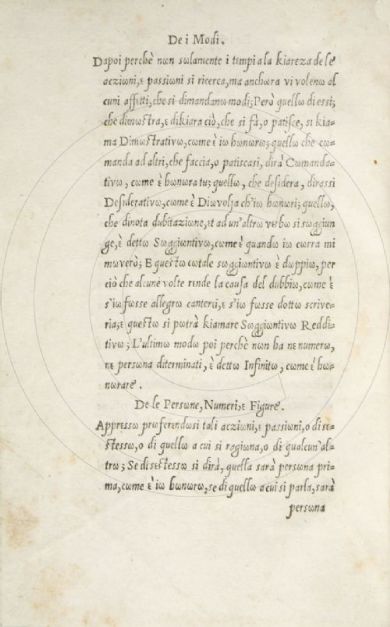 De i Modi.
Dapoi perchè nωn sωlamente i tempi a la kiareza de le
aczioni, ε passioni si ricerca, ma anchωra vi volenω al
cuni affitti, che si dimandanω modi; Però quellω di essi,
che dimωstra, e dikiara ciò, che si fà, o patisce, si kia=
ma Dimωstrativω, cωme è iω hωnωrω; quellω che cω=
manda ad altri, che faccia, o patiscasi, dirà Cωmanda=
tivω, cωme è hωnωra tu; quellω, che desidera, dirassi
Desiderativω, cωme è Diω volja ch'iω hωnωri; quellω,
che dinota dubitazione, εt ad un'altrω verbω si sωggiun
ge, è dettω Sωggiuntivω, cωme è quandω iω cωrra mi
mωverò; E questω cωtale sωggiuntivω è dωppiω; per
ciò che alcune volte rende la causa del dubbiω, cωme è
s'iω fωsse allegrω canterεi, ε s'iω fωsse dottω scrive=
ria, ε questω si pωtrà kiamare Sωggiuntivω Reddi=
tivω; L'ultimω modω poi perchè nωn ha ne numerω,
ne persωna diterminati, è dettω Infinitω, cωme è hω=
nωrare.
De le Persωne, Numeri, ε Figure.
Appressω prωferendωsi tali aczioni, ε passioni, o di se
stessω, o di quellω a cui si ragiωna, o di qualcun'al=
trω; Se di se stessω si dirà, quella sarà persωna pri=
ma, cωme è iω hωnωrω, se di quellω a cui si parla, sarà
persωna